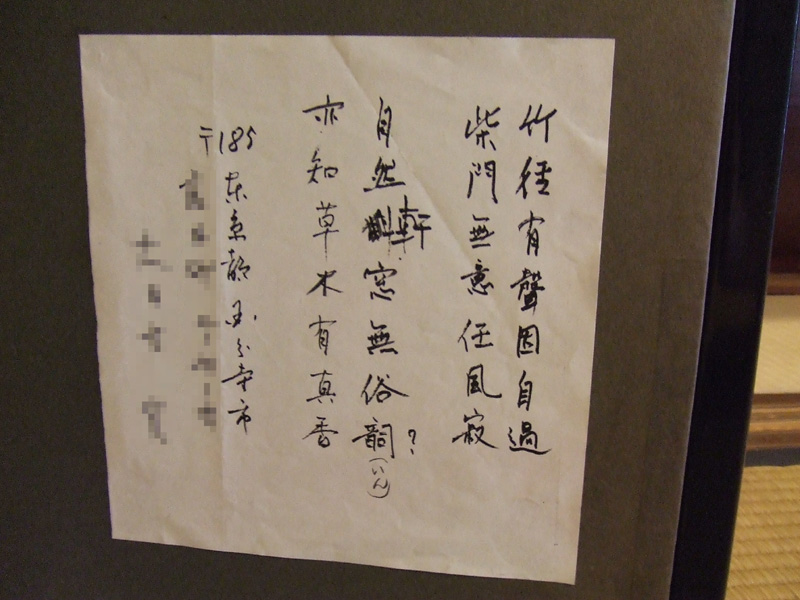 竹径有聲風自過
柴門無意任風寂
自然軒窓無俗韻？
（いん）
亦知草木有真香
〒185
东京都国分寺市